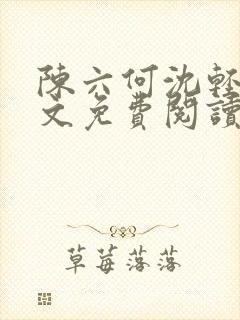 陳六何沈輕
文免費閱讀
草莓落落